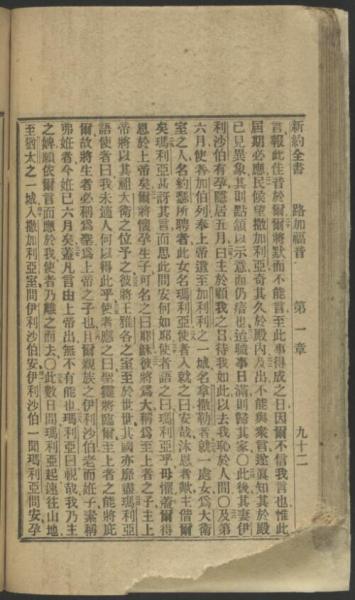 新約全書　路加福音　第一章　九十二
言報此佳音於爾爾將默而不能言至此事得成之日因爾不信我言也惟此
屆期必應民候望撒加利亞奇其久於殿內及出不能與衆言遂眞知其於殿
已見異象其則點頭以示意而仍瘖也追職事日滿則歸其家〇此後其妻伊
利沙伯有孕隱居五月曰主於顧我之日待我如此以去我恥於人間〇及第
六月使者加伯列奉上帝遣至加利利之一城名拿撒勒者就一處女爲大衛
室之人名約瑟所聘者此女名瑪利亞使者入就之曰安哉沐恩者歟主偕爾
矣瑪利亞其訝其言而思此問安何如耶使者語之曰瑪利亞乎毋懼蓋爾得
恩於上帝矣爾將懷孕生子可名之曰耶穌彼將爲大稱爲至上者之子主上
帝將以其祖大衛之位予之彼將王雅各之室至於世世其國亦靡盡瑪利亞
語使者曰我未適人何以得此乎使者應之曰聖靈將臨爾至上者之能將庇
爾故將生者必稱爲聖爲上帝之子也且爾親戚之伊利沙伯老而姙子素稱
弗姙者今姙已六月矣蓋凡言由上帝出無不有能也瑪利亞曰視哉我乃主
之婢願依爾言而應於我使者乃離之而去〇此數日間瑪利亞起速往山地
至猶太之一城入撒加利亞室問伊利沙伯安伊利沙伯一聞瑪利亞問安孕